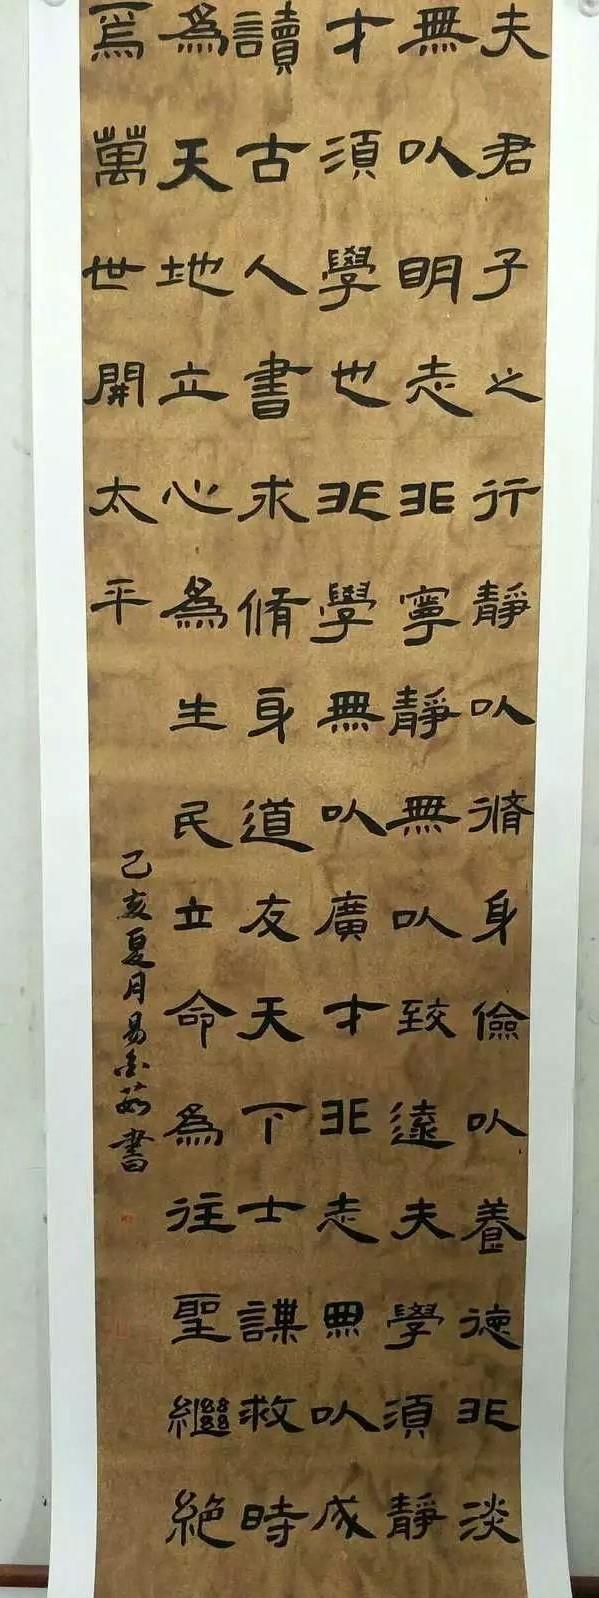 夫君子之行靜以脩身儉以養德非淡
無以明志非寧靜無以致遠夫學須靜
才須學也非學無以廣才非志無以成
讀古人書求脩身道友天下士謀救時
為天地立心為生民立命為往聖繼絕
為萬世開太平
己亥夏月易香茹書